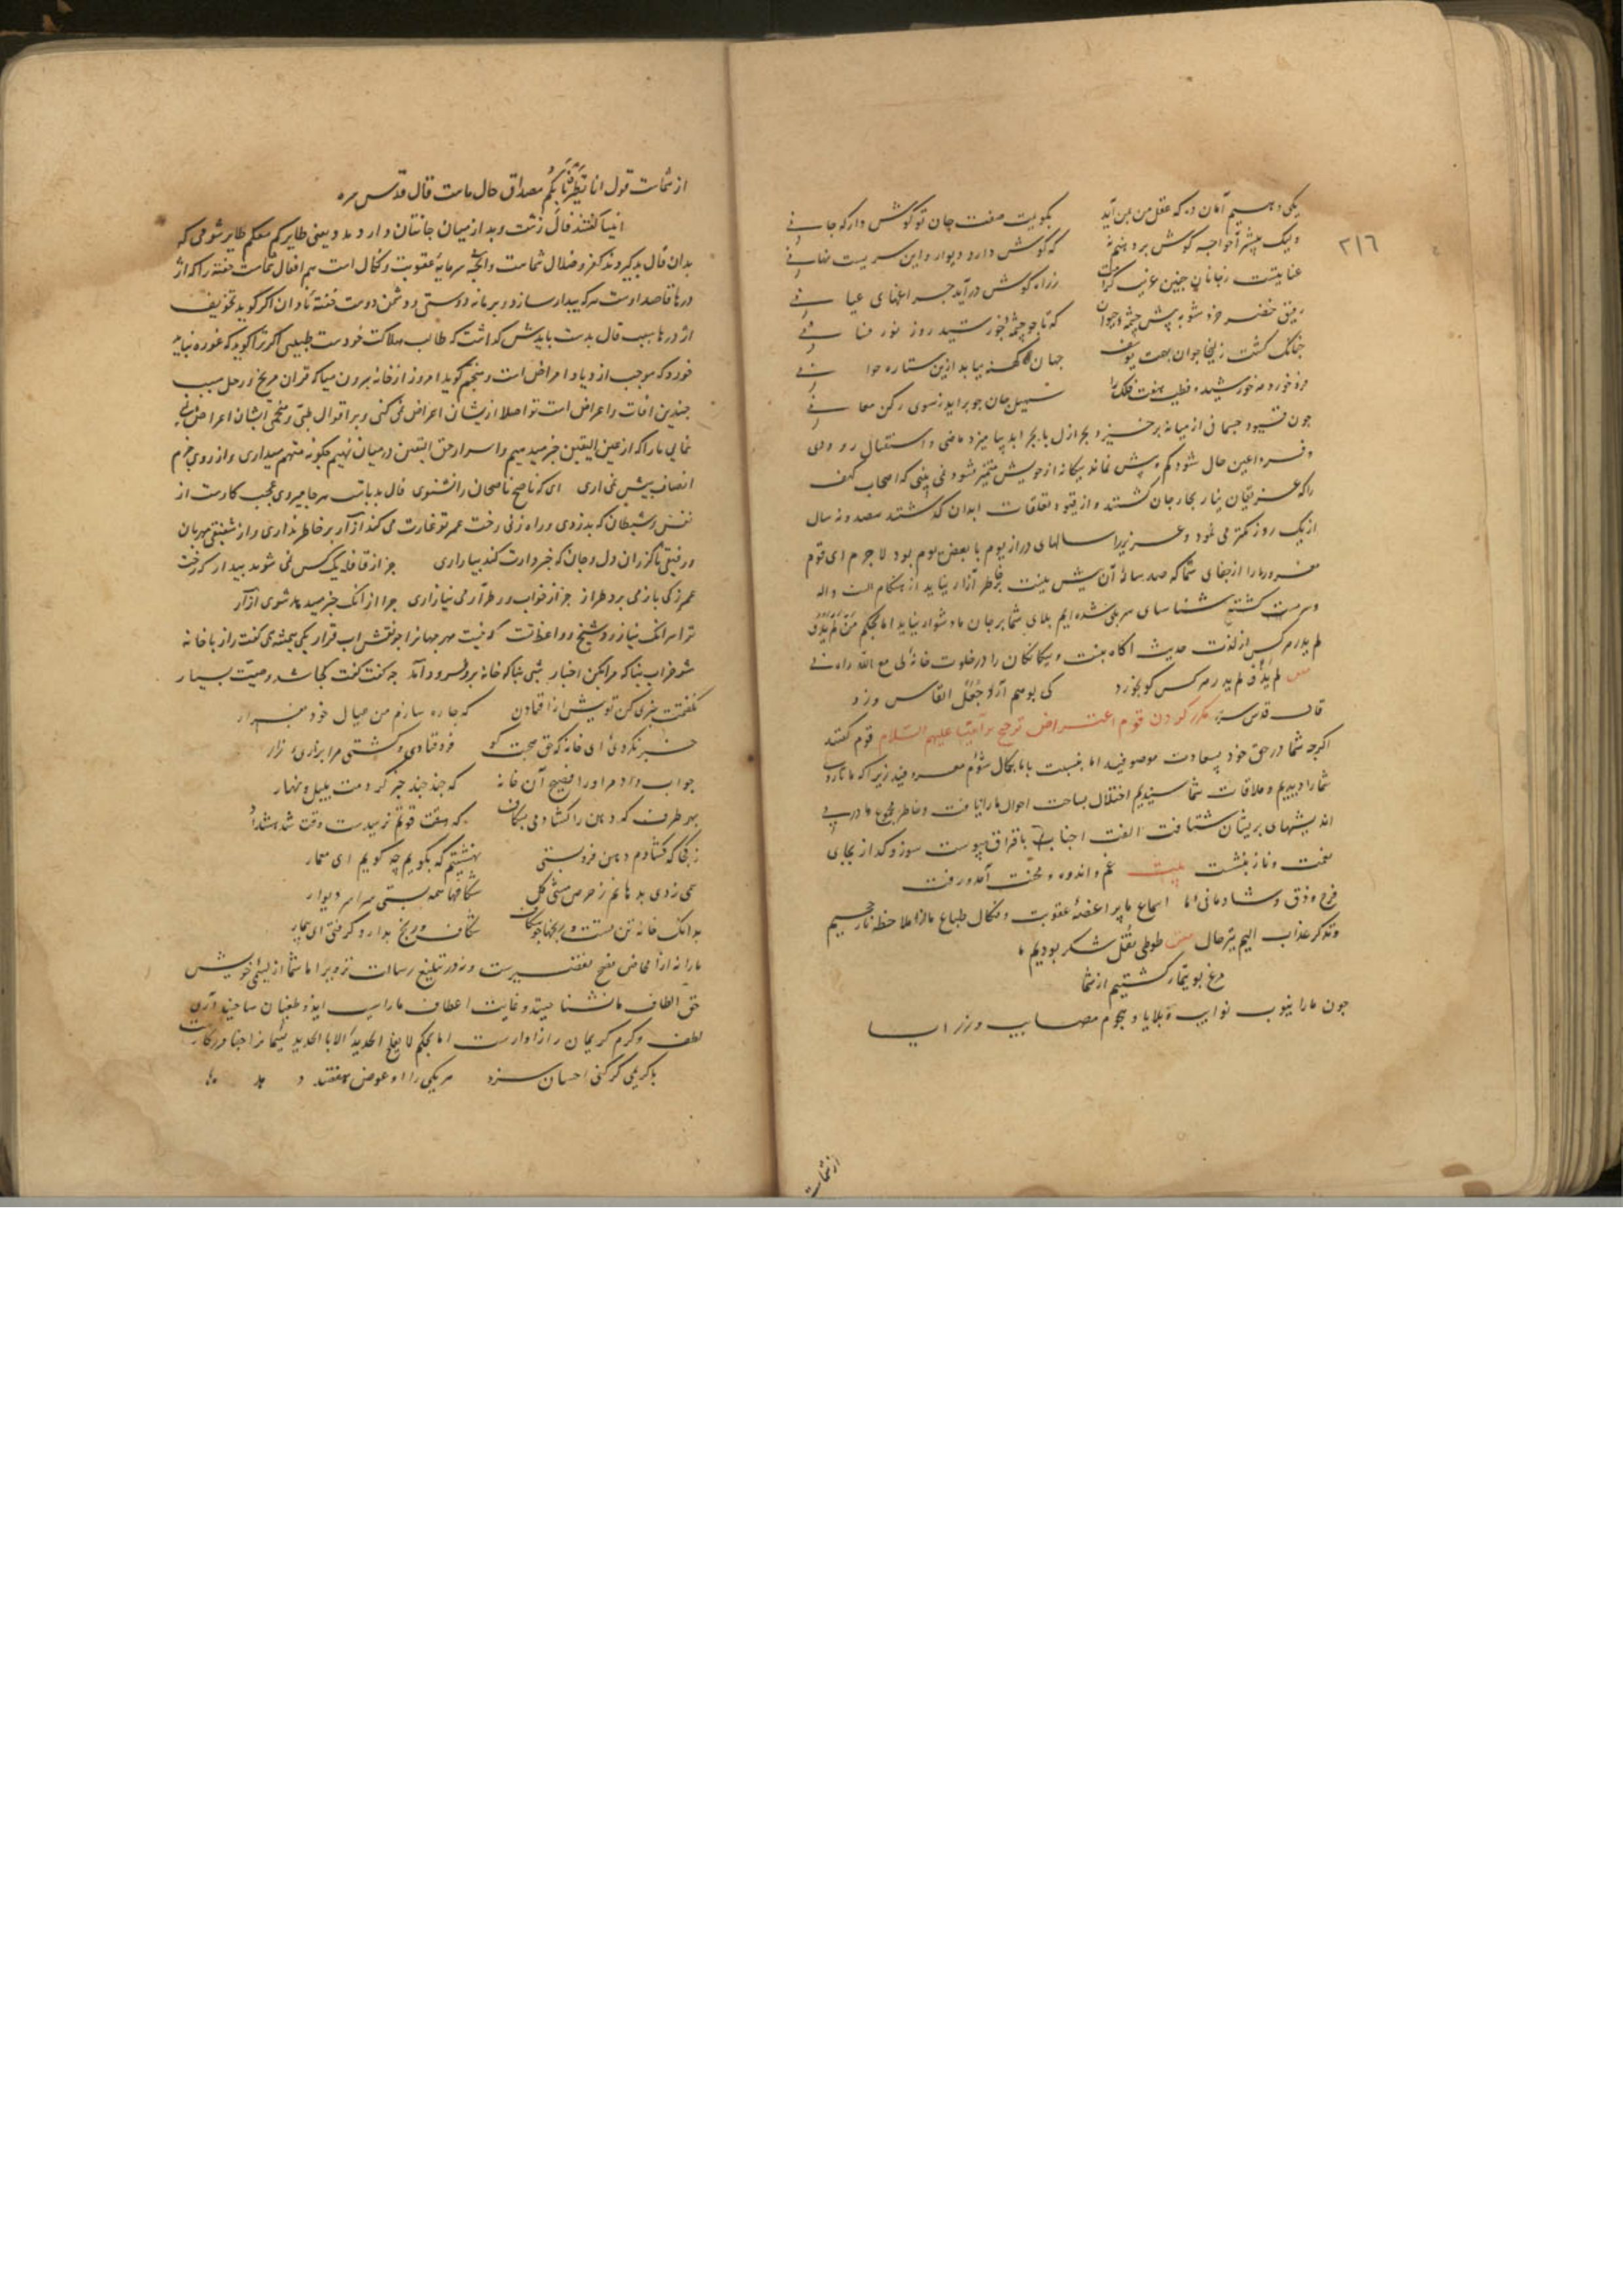 ۲۱۶
یکی دهیم آمان ده که عقل من بمن آید بگویمت صفت جان تو گوش دار که جانی
ولیک پیشتر آ خواجه گوش بر دهنم نه که گوش دارد دیوار و این سریست نهانی
عنایتست ز جانان چنین غریب کرامت ز راه گوش درآید چراغهای عیانی
رفیق خضر خرد شو به پیش چشمه حیوان که تا چو چشمه خورشید روز نور فشانی
چنانک گشت زلیخا جوان بهمت یوسف جهان کهنه بیابد ازین ستاره جوانی
فرو خورد مه خورشید و قطب هفت فلک را سهیل جان چو براید ز سوی رکن یمانی
چون قیود جسمانی از میانه برخیزد بحر ازل با بحر ابد بیامیزد ماضی و استقبال رو
و فردا عین حال شود کم و بیش نماند بیگانه از خویش متمیز نشود نمی بینی که اصحاب کهف
را که غریقان بحار جان گشتند و از قیود تعلقات ابدان گذشتند سیصد و نه سال
از یک روز کمتر می نمود و عزیر را سالهای دراز یوم یا بعض یوم بود لاجرم ای قوم
مغرور ما را از جفای شما که صد ساله آن بیش نیست بخاطر آزار نیاید از هنگام الست واله
و سرمست گشته شناسای سر بلی شده ایم بلای شما بر جان ما دشوار نیاید اما بحکم من لم یذق
لم یدر هر کس از لذت حدیث آگاه نیست و بیگانگان را در خلوت خانه لی مع الله راه نی
لم یذق لم یدر هر کس کو نخورد کی بوهم آرد جعل انفاس ورد
قال قدس سره مکرر کردن قوم اعتراض ترجیح بر انبیا علیهم السلام قوم گفتند
اگرچه شما در حق خود بسعادت موصوفید اما بنسبت باما بکمال شوم معروفید زیرا که ما تا روی
شما را دیدیم و ملاقات شما رسیدیم اختلال بساحت احوال ما راه یافت و خاطر مجموع ما در پی
اندیشهای پریشان شتافت الفت احباب با فراق پیوست سوز و گداز بجای
نعمت و ناز نشست بیت غم و اندوه و محنت آمد و رفت
فرح و ذوق و شادمانی ما اسماع ما پر اعضه عقوبت و نکال طباع ما از ملاحظه نار جحیم
و تذکر عذاب الیم بترحال طوطی نقل شکر بودیم ما
مرغ بوتیمار گشتیم از شما
چون ما را بنیوب نوایب و بلایا و هجوم مصایب و رزایا
از شمات
از شمات قول انا تطیرنا بکم مصداق حال ماست قال قدس سره
انبیا گفتند فال زشت و بد از میان جانتان دارد مدد یعنی طایرکم معکم طایر شومی که
بدان فال بد گیرند کفر و ضلال شماست وانچه سرمایه عقوبت و نکال است هم افعال شماست خفته را که اژ
درها قاصد اوست هر که بیدار سازد و برهاند دوستی دو دشمن دوست خفته نادان اگر گوید تخویف
اژدرها سبب فال بدست بایدش گذاشت که طالب هلاکت خودست طبیبی اگر ترا گوید که غوره نباید
خورد که موجب ازدیاد امراض است و منجم گوید امروز از خانه برون میا که قران مریخ و زحل سبب
چندین آفات و اعراض است تو اصلا ازیشان اعراض نمی کنی و بر اقوال طبی و منجمی ایشان اعراض
نمایی ما را که از عین الیقین خبر میدهیم و اسرار حق الیقین در میان نهیم چگونه متهم میداری و از روی جزم
انصاف پیش نمی اری ای که ناصح ناصحان را نشنوی فال بد باتست هر جا میروی عجب کارست از
نفس و شیطان که بدزدی و راه زنی رخت عمر تو غارت می کنند ازار بر خاطر نداری و از شفیقی مهربان
و رفیقی ناگزران دل و جان که خبردارت کند بیزاری جز از قافله یک کس نمی شود بیدار که رخت
عمر ز کی باز می برد طرار جز از خواب و ز طرار می نیازاری چرا از انک خبر میدهد شوی ازار
ترا هر انک نیازرد شیخ و واعظ تست که نیست مهر جهانرا چو نقش اب قرار یکی همیشه همی گفت راز با خانه
مشو خراب بناگه مرا بکن اخبار شبی بناگه خانه برو فرود آمد چه گفت گفت کجا شد وصیت بسیار
نگفتمت خبری کن تو پیش از افتادن که چاره سازم من عیال خود بفرار
خبر نکردی ای خانه کو حق صحبت کو فرو فتادی و کشتی مرا بزاری و زار
جواب داد مر او را فصیح آن خانه که چند چند خبر کردمت بلیل و نهار
بهر طرف که دهن را گشادمی بشکاف که هفت قوتم نرسیدست وقت شد هشدار
زهر کجا که گشادم دهن فرو بستی نهشتیم که بگویم چه گویم ای معمار
همی زدی بدهانم ز حرص مشتی گل شکافها همه بستی سراسر دیوار
بدانک خانه تن تست و رنجها چو شکاف شکاف رنج بدارو گرفتی ای بیمار
ما را نه از امحاض نصح تقصیرست و نه در تبلیغ رسالت تزویر اما شما از لئیمی خویش
حق الطاف ما نشناختید و غایت اعطاف ما را سبب ایذا و طغیان ساختید آری
لطف و کرم کریمان را سزاوارست اما بحکم لا یفلح الحدید الا بالحدید لئیمانرا جفا در کارست
با کریمی گر کنی احسان سزد مر یکی را او عوض هفصد دهد